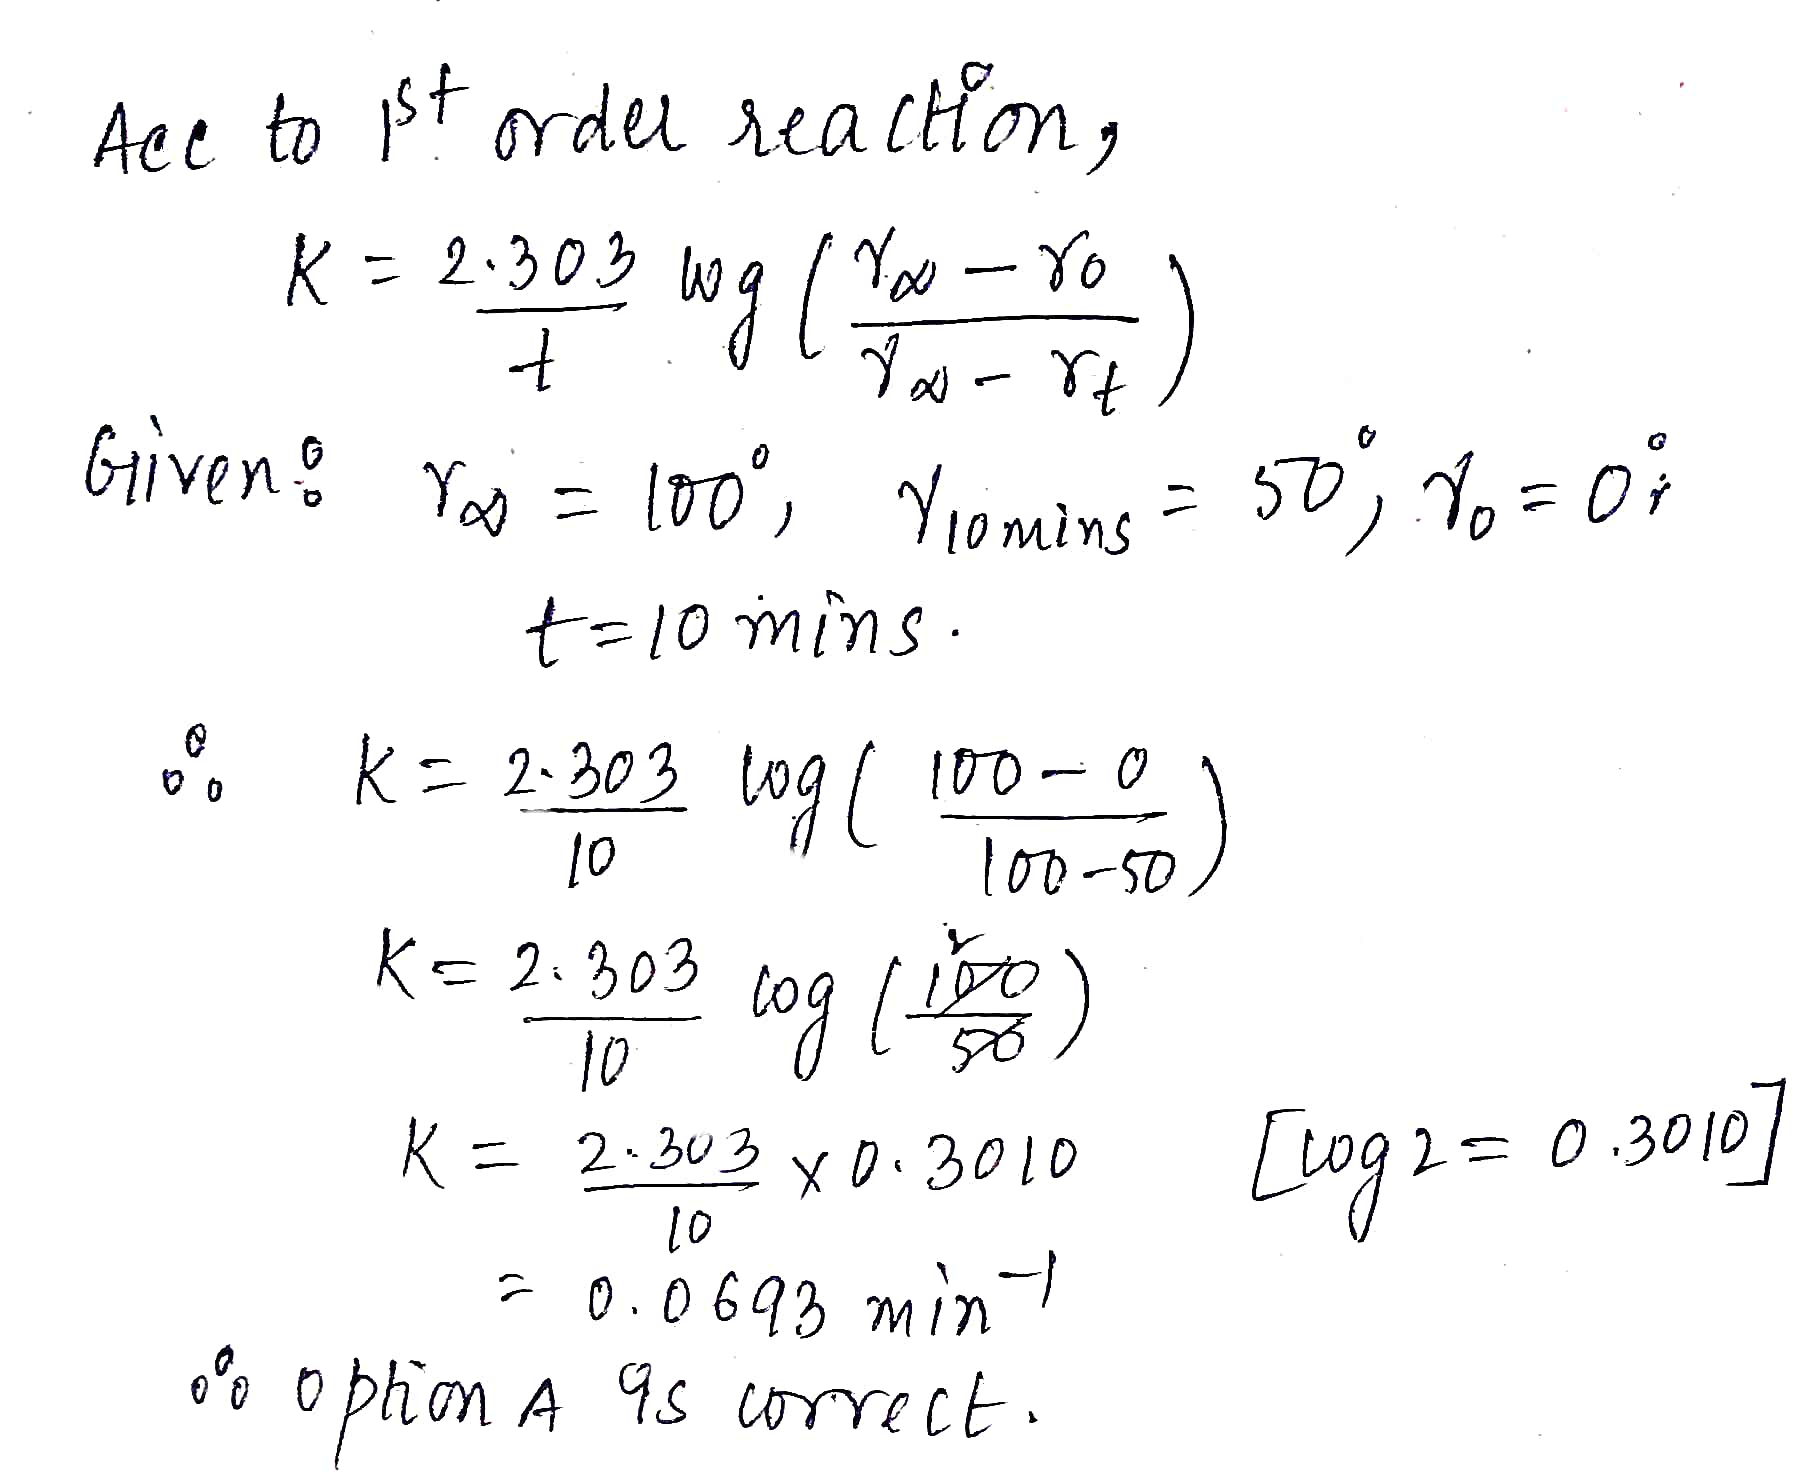 Acc to 1st order reaction,
K = 2.303/t log (r∞ − r0 / r∞ − rt)
Given: r∞ = 100°, r10mins = 50°, r0 = 0°;
t = 10 mins.
∴ K = 2.303/10 log (100 − 0 / 100 − 50)
K = 2.303/10 log (100/50) 2
K = 2.303/10 x 0.3010 [log 2 = 0.3010]
= 0.0693 min⁻¹
∴ option A is correct.